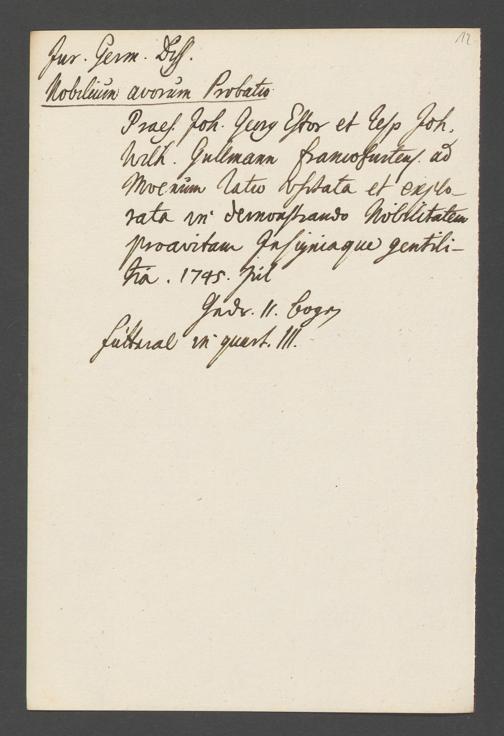 12
Jur. Germ. Diss.
Nobilium avorum Probatio
Praes. Joh. Georg Estor et Resp Joh.
Wilh. Gullmann Francofurtens. ad
Moenum ratio usitata et explo-
rata in demonstrando Nobilitatem
proavitam Insigniaque gentili-
tia. 1745.
11.
in quart. III.